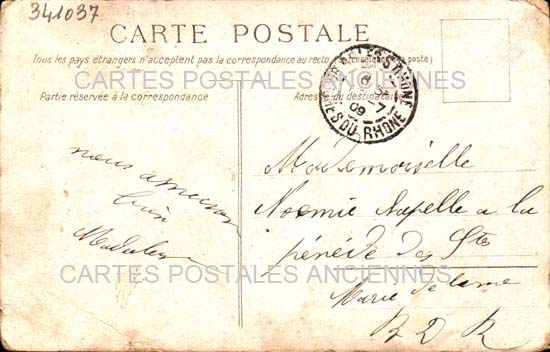 341037
CARTE POSTALE
Tous les pays étrangers n'acceptent pas la correspondance au recto (se renseigner à la poste)
CARTES POSTALES ANCIENNES
Partie réservée à la correspondance
Adresse du destinataire
09
DU-RHONE
nous amuson
bien
Mademoiselle
Noemie Napelle a la
des Stes
Marie de la mer
B D R
CARTES POSTALES ANCIENNES